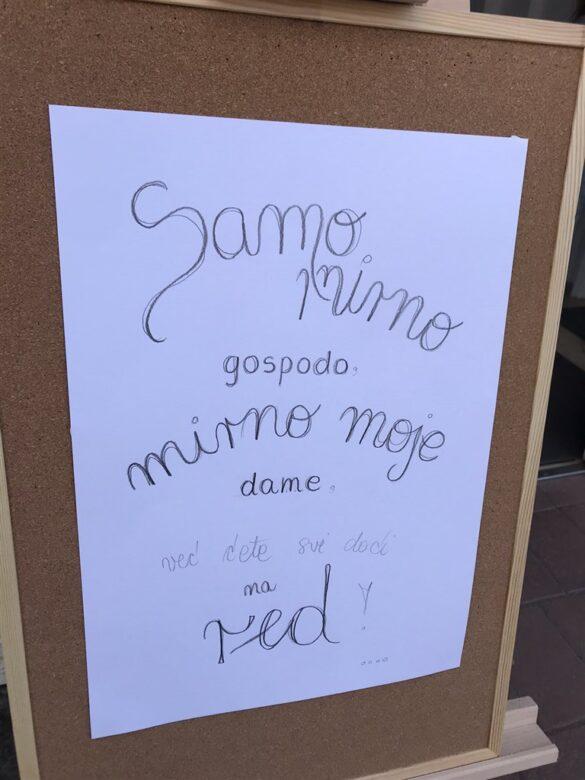 Samo
mirno
gospodo,
mirno moje
dame,
već ćete svi doći
na
red!
....